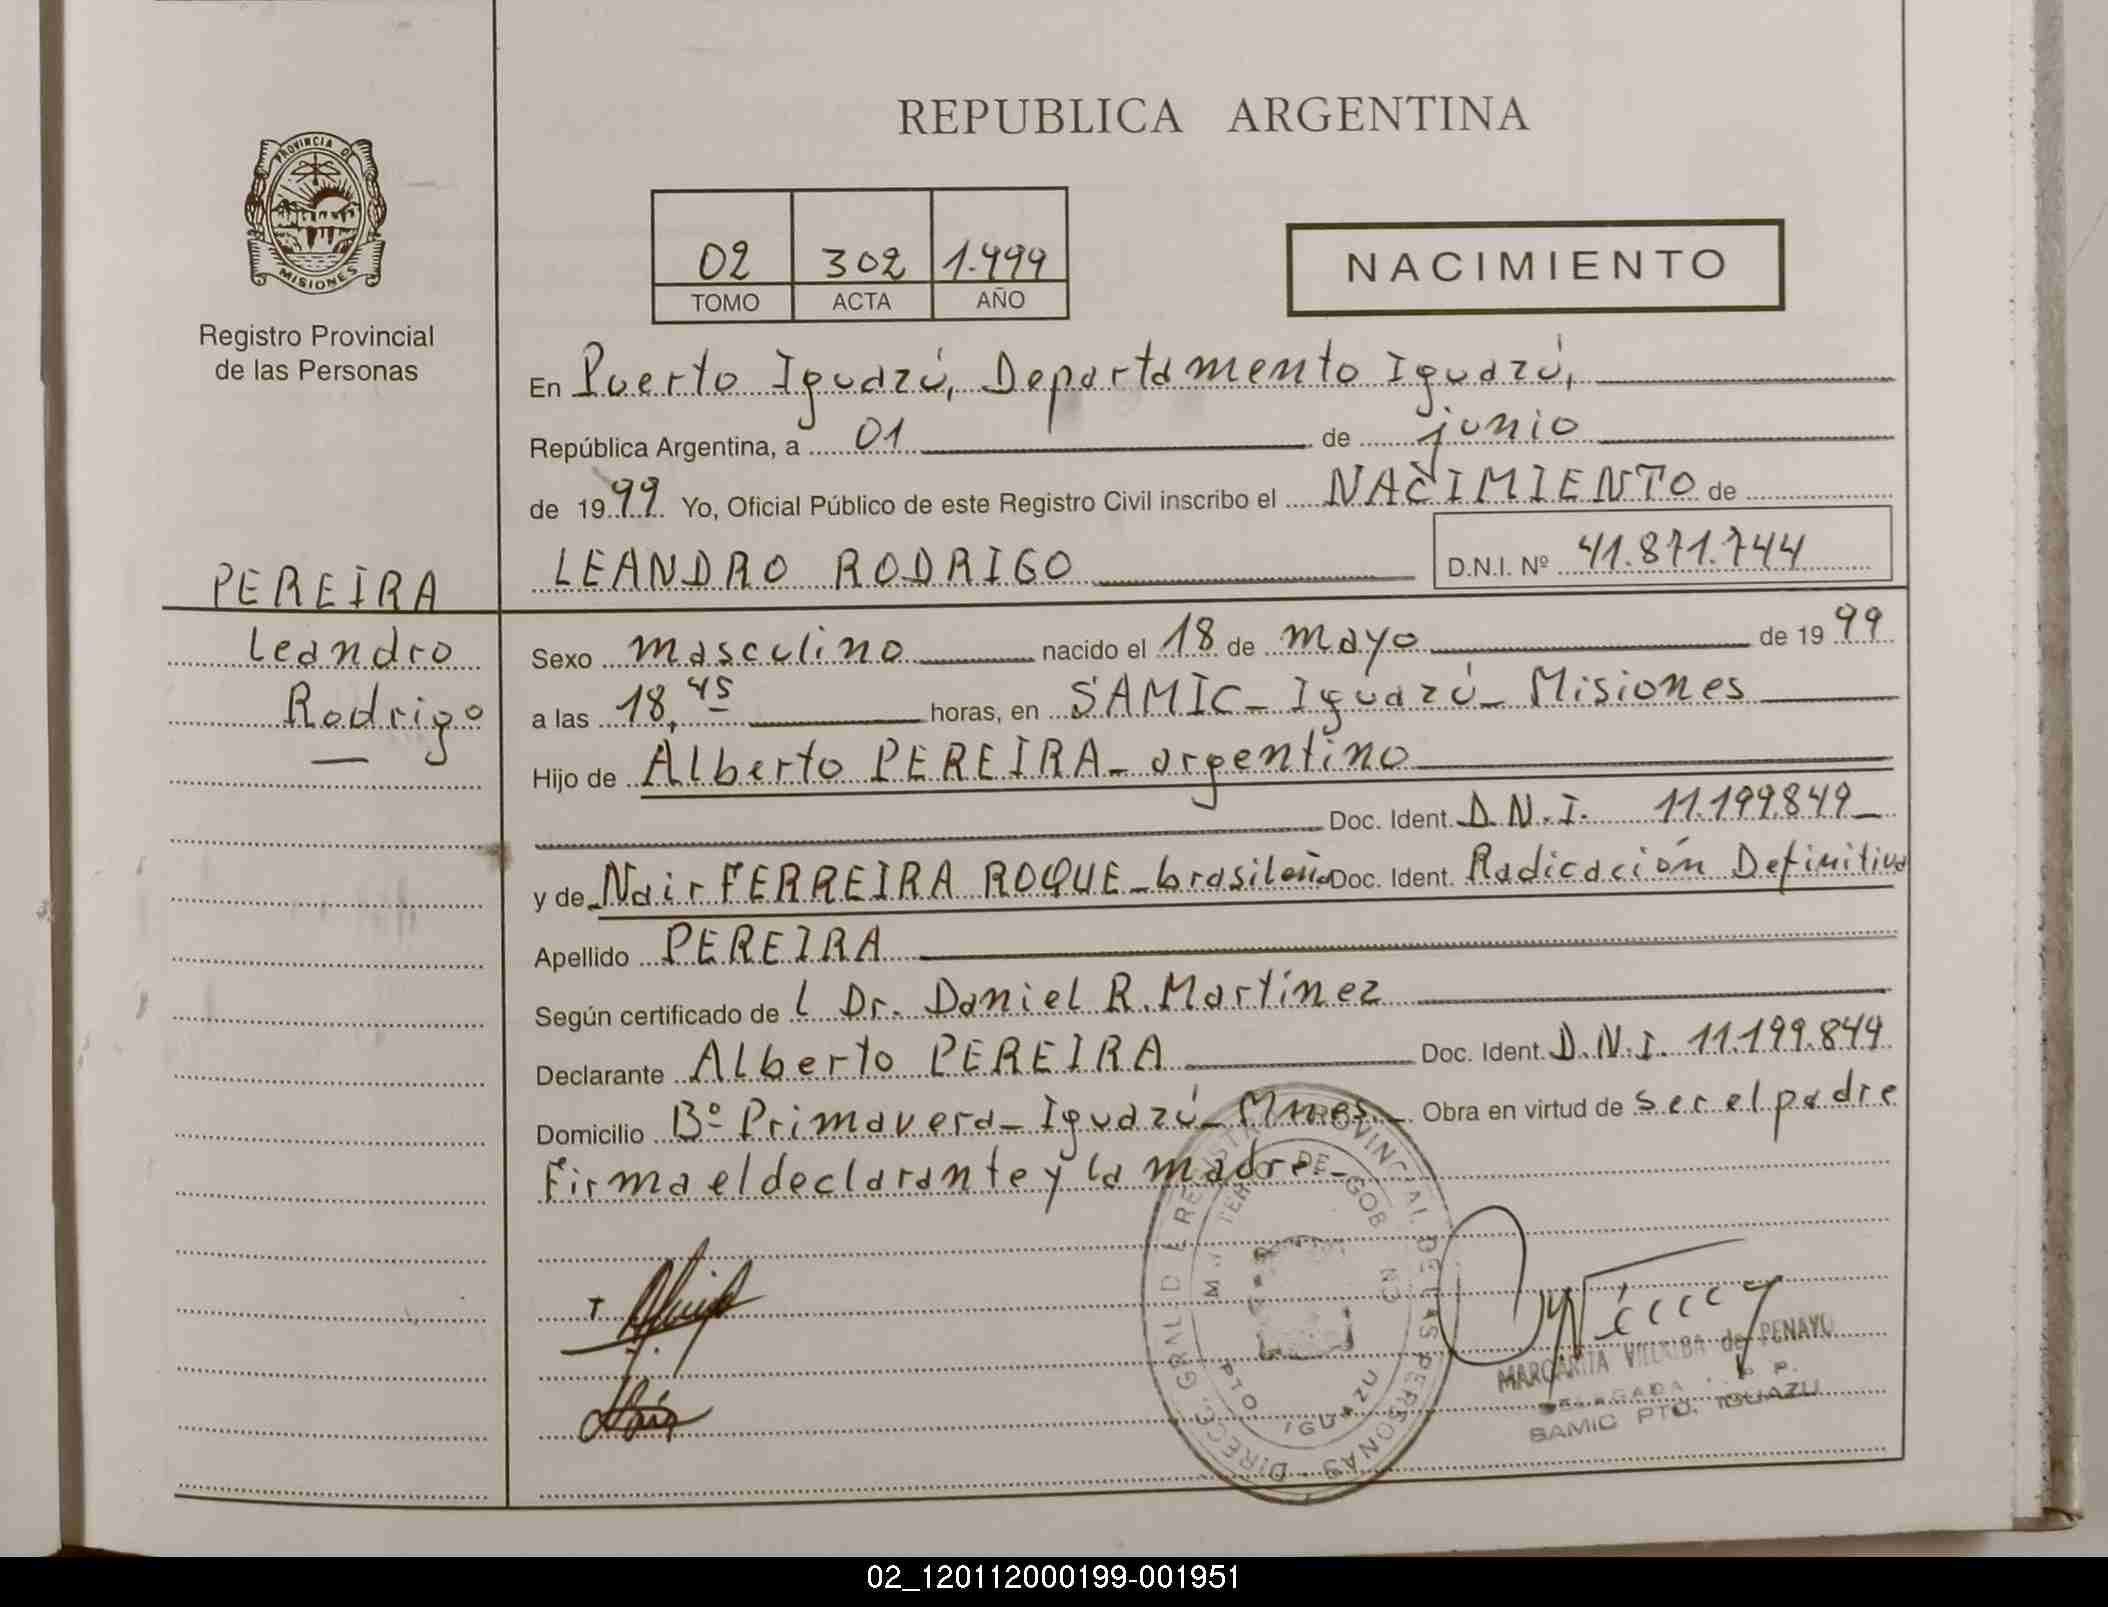 REPUBLICA ARGENTINA
PROVINCIA DE
MISIONES
Registro Provincial
de las Personas
02 302 1.999
TOMO ACTA AÑO
NACIMIENTO
En Puerto Iguazú, Departamento Iguazú,
República Argentina, a 01 de junio
de 1999 Yo, Oficial Público de este Registro Civil inscribo el NACIMIENTO de
LEANDRO RODRIGO D.N.I. Nº 41.871.744
PEREIRA
Leandro
Rodrigo
Sexo masculino nacido el 18 de mayo de 1999
a las 18,45 horas, en SAMIC - Iguazú - Misiones
Hijo de Alberto PEREIRA - argentino
Doc. Ident. D.N.I. 11.199.849
y de Nair FERREIRA ROQUE - brasileña Doc. Ident. Radicación Definitiva
Apellido PEREIRA
Según certificado de l Dr. Daniel R. Martínez
Declarante Alberto PEREIRA Doc. Ident. D.N.I. 11.199.849
Domicilio Bº Primavera - Iguazú - Mnes - Obra en virtud de ser el padre
Firma el declarante y la madre -
DIRECC. GRAL DE REGISTRO PROVINCIAL DE LAS PERSONAS
DE GOB
PTO IGUAZU
MARGARITA VILLALBA de PENAYO
DELEGADA
SAMIC PTO. IGUAZU
02_120112000199-001951